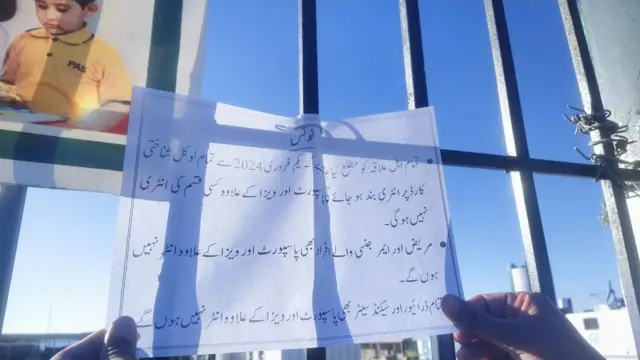 PAS
نوٹس
تمام اہل علاقہ کو مطلع کیا جاتا ہے کہ یکم فروری 2024 سے تمام لوکل شناختی
کارڈ پر انٹری بند ہو جائے گا پاسپورٹ اور ویزا کے علاوہ کسی قسم کی انٹری
نہیں ہوگی۔
مریض اور ایمرجنسی والے افراد بھی پاسپورٹ اور ویزا کے علاوہ انٹر نہیں
ہوں گے۔
تمام ڈرائیور اور سیکنڈ سیٹر بھی پاسپورٹ اور ویزا کے علاوہ انٹر نہیں ہوں گے